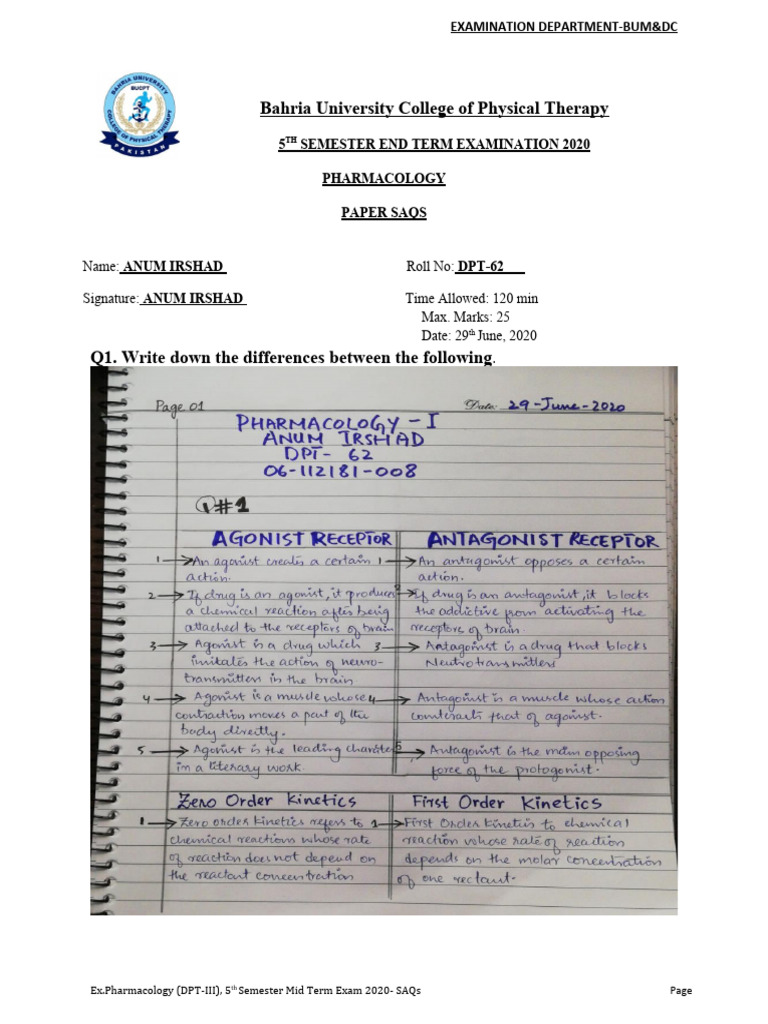 EXAMINATION DEPARTMENT-BUM&DC
BAHRIA UNIVERSITY
BUCPT
COLLEGE OF PHYSICAL THERAPY
PAKISTAN
Bahria University College of Physical Therapy
5TH SEMESTER END TERM EXAMINATION 2020
PHARMACOLOGY
PAPER SAQS
Name: ANUM IRSHAD Roll No: DPT-62
Signature: ANUM IRSHAD Time Allowed: 120 min
Max. Marks: 25
Date: 29th June, 2020
Q1. Write down the differences between the following.
Page 01 Date: 29-June-2020
PHARMACOLOGY - I
ANUM IRSHAD
DPT- 62
06-112181-008
Q#1
AGONIST RECEPTOR ANTAGONIST RECEPTOR
1 → An agonist creates a certain 1 → An antagonist opposes a certain
action. action.
2 → If drug is an agonist, it produces 2 → If drug is an antagonist, it blocks
a chemical reaction after being the addictive from activating the
attached to the receptors of brain receptors of brain.
3 → Agonist is a drug which 3 → Antagonist is a drug that blocks
imitates the action of neuro- Neutrotransmitters
transmitters in the brain
4 → Agonist is a muscle whose 4 → Antagonist is a muscle whose action
contraction moves a part of the counteracts that of agonist.
body directly.
5 → Agonist is the leading character 5 → Antagonist is the main opposing
in a literary work. force of the protogonist.
Zero Order Kinetics First Order Kinetics
1 → Zero order kinetics refers to 1 → First Order Kinetis to chemical
chemical reactions whose rate reaction whose rate of reaction
of reaction does not depend on depends on the molar concentration
the reactant concentration of one rectant.
Ex.Pharmacology (DPT-III), 5th Semester Mid Term Exam 2020- SAQs Page